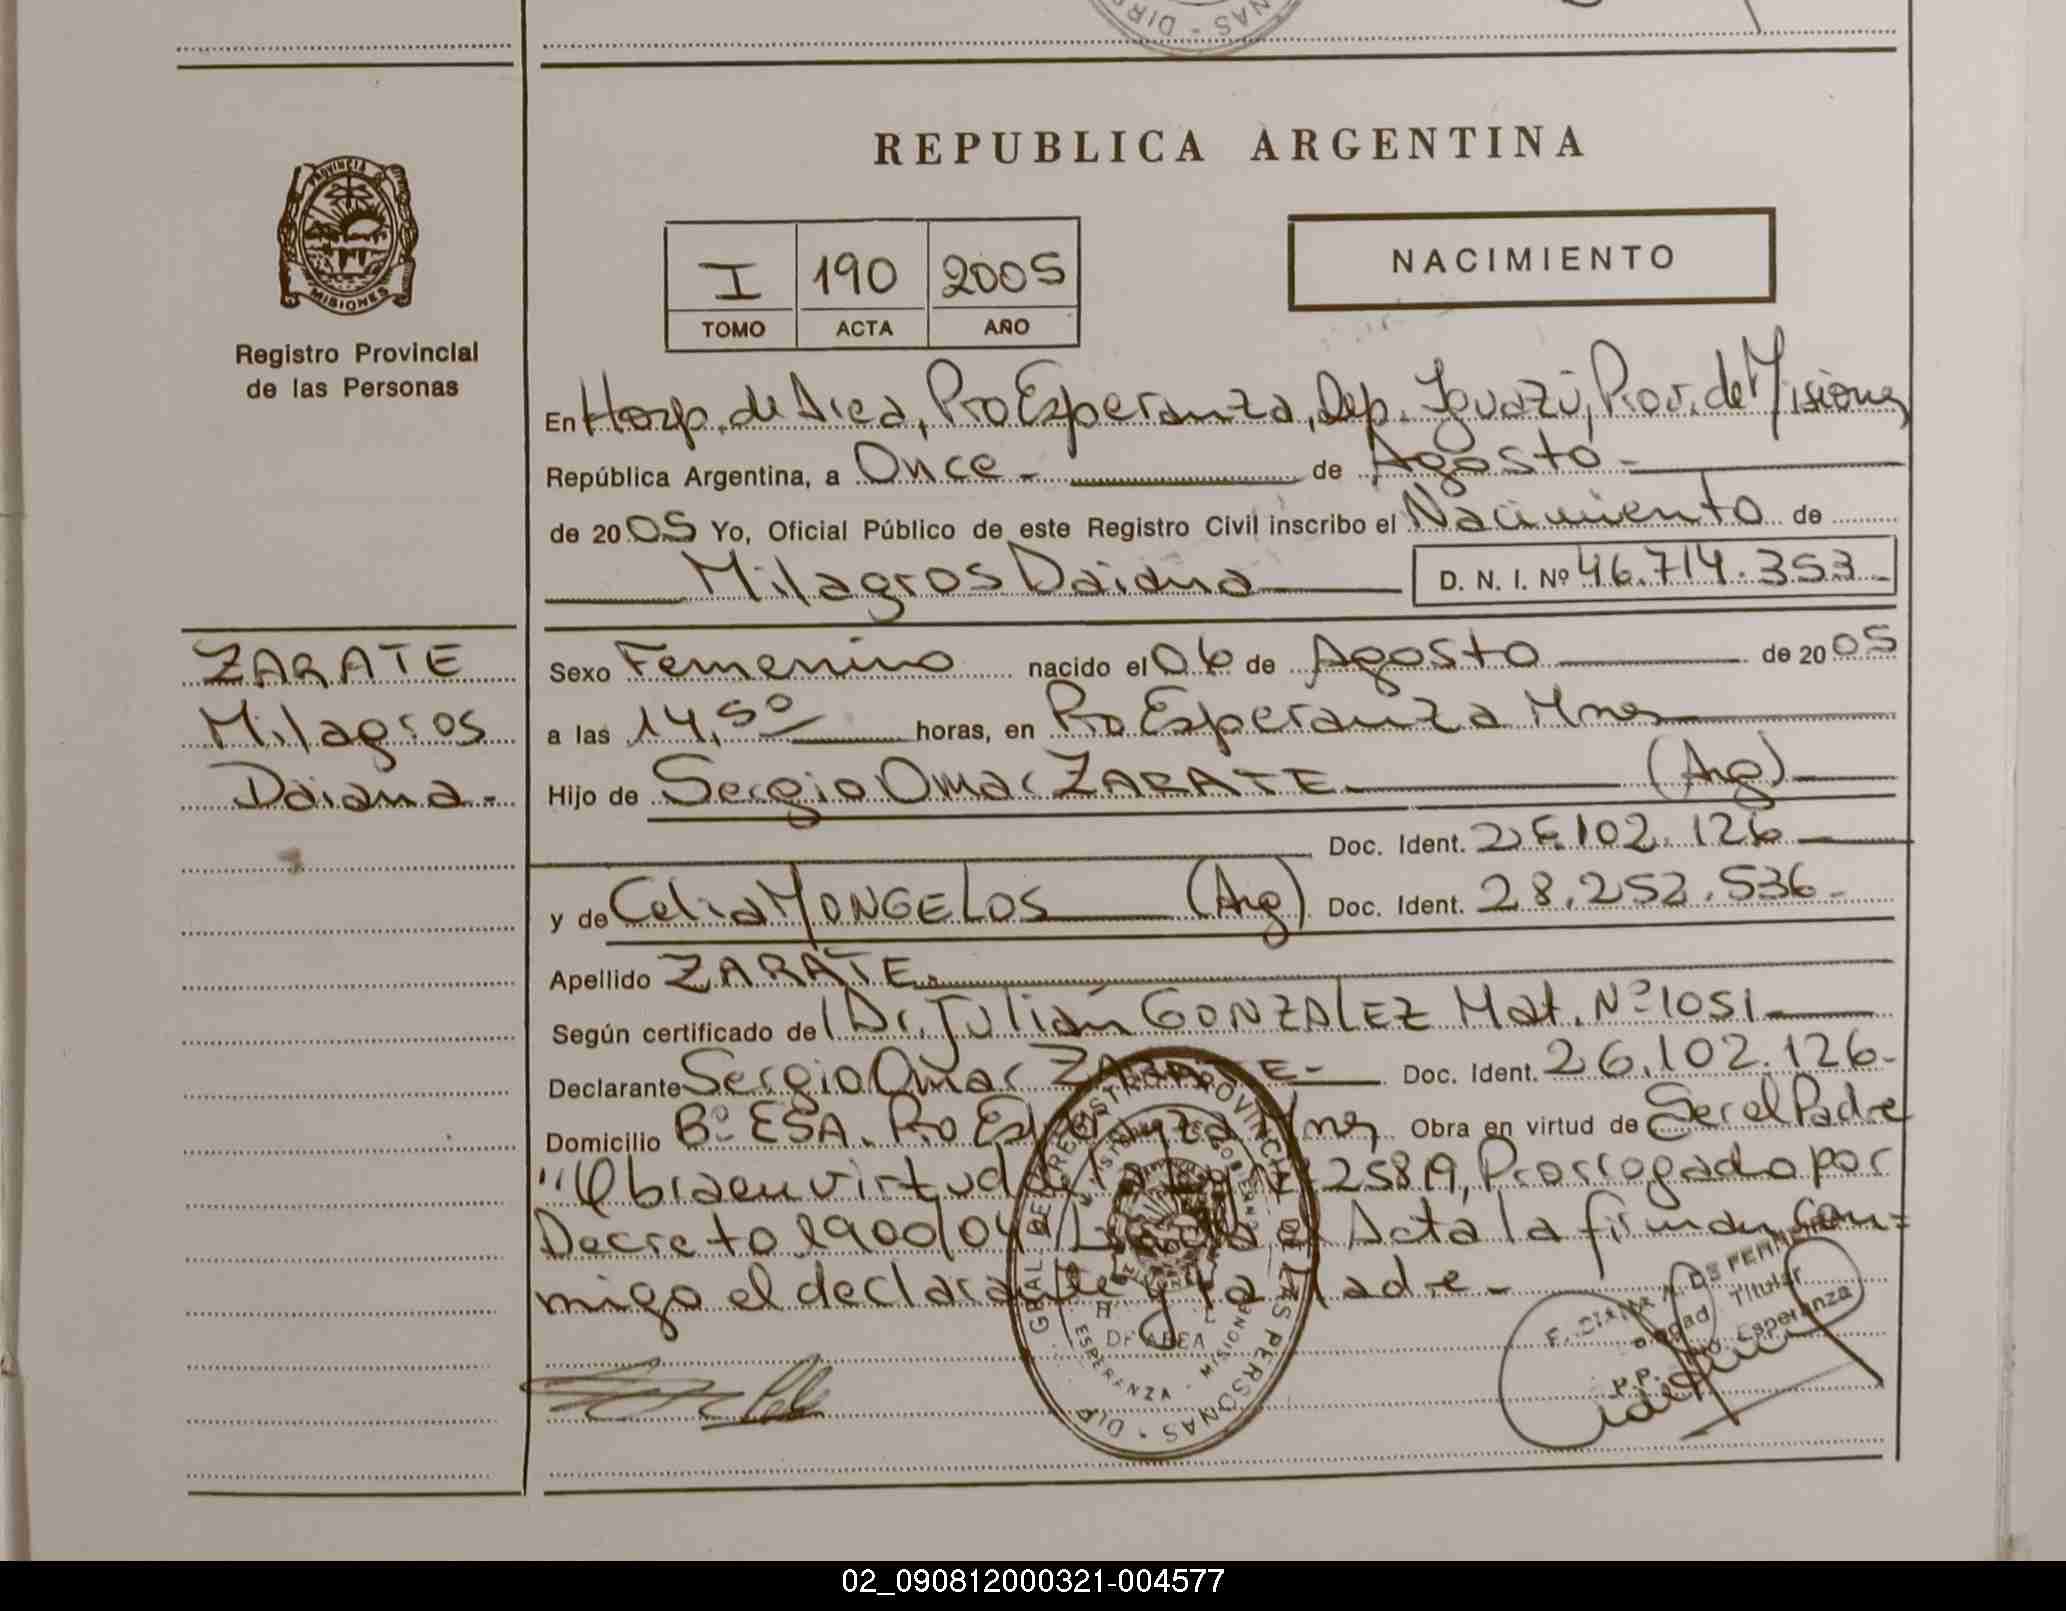 REPUBLICA ARGENTINA
PROVINCIA DE MISIONES
Registro Provincial
de las Personas
I 190 2005
TOMO ACTA AÑO
NACIMIENTO
En Hosp. de Area, Pto Esperanza, Dep. Iguazú, Prov. de Misiones
República Argentina, a Once - de Agosto -
de 2005 Yo, Oficial Público de este Registro Civil inscribo el Nacimiento de
Milagros Daiana D. N. I. Nº 46.714.353 -
ZARATE
Milagros
Daiana -
Sexo Femenino nacido el 06 de Agosto de 2005
a las 14,50 horas, en Pto Esperanza Mnes
Hijo de Sergio Omar ZARATE (Arg)
Doc. Ident. 26.102.126
y de Celia MONGELOS (Arg) Doc. Ident. 28.252.536 -
Apellido ZARATE.
Según certificado del Dr. Julián GONZALEZ Mat. Nº 1051
Declarante Sergio Omar ZARATE - Doc. Ident. 26.102.126 -
Domicilio Bº ESA. Pto Esperanza Mnes Obra en virtud de Ser el Padre
"Obra en virtud de la Ley Nº 25819, Prorrogado por
Decreto 1900/04 Leída el Acta la firman con=
migo el declarante y la Madre -
GRAL. DE REGISTRO PROVINCIAL DE LAS PERSONAS · DIR
ESPERANZA - MISIONES
DE AREA
Titular
Esperanza
02_090812000321-004577